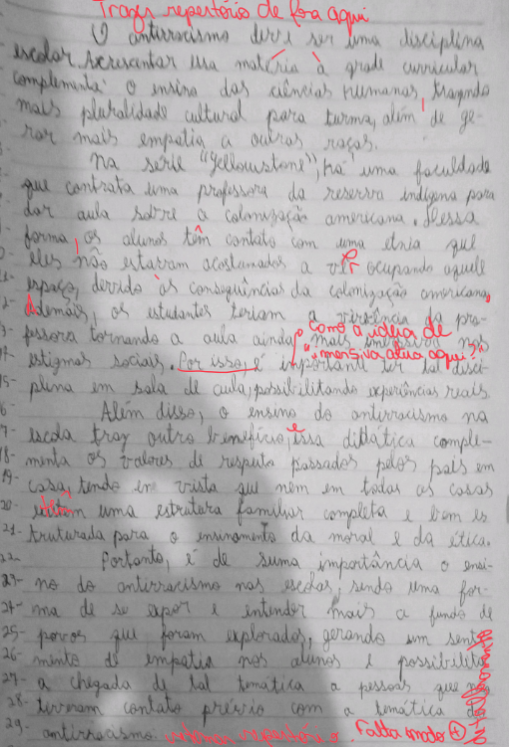 Trazer repertório de fora aqui
O antirracismo deve ser uma disciplina
escolar. Acrescentar essa matéria à grade curricular
complementa o ensino das ciências humanas, trazendo
mais pluralidade cultural para turma, além de ge-
rar mais empatia a outras raças.
Na série "Yellowstone", há uma faculdade
que contrata uma professora da reserva indígena para
dar aula sobre a colonização americana. Dessa
forma, os alunos têm contato com uma etnia que
eles não estavam acostumados a ver ocupando aquele
espaço, devido às consequências da colonização americana,
12- Ademais, os estudantes teriam a vivência da pro-
13- fessora tornando a aula ainda mais imersiva nos
como a ideia de
"imersiva atua aqui?"
14- estigmas sociais. Por isso, é importante ter tal disci-
15- plina em sala de aula, possibilitando experiências reais.
16 Além disso, o ensino do antirracismo na
17- escola traz outro benefício, essa didática comple-
18- menta os valores de respeito passados pelos pais em
19- casa, tendo em vista que nem em todas as casas
20- uma estrutura familiar completa e bem es
21- truturada para o ensinamento da moral e da ética.
22- Portanto, é de suma importância o ensi-
23- no do antirracismo nas escolas, sendo uma for-
24- ma de se expor e entender mais a fundo de
25- povos que foram explorados, gerando um senti
26- mento de empatia nos alunos e possibilita
27- a chegada de tal temática a pessoas que não
28- tiveram contato prévio com a temática do
29- antirracismo. repertório. Falta modo +